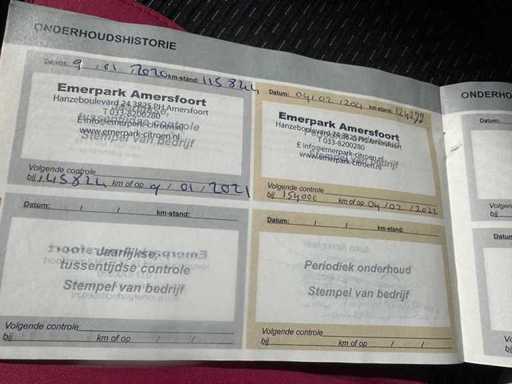 ONDERHOUDSHISTORIE
Datum: 9 / 01 / 2020 km-stand: 115824
Emerpark Amersfoort
Hanzeboulevard 24 3825 PH Amersfoort
T 033-8200280
E info@emerpark-citroen.nl
www.emerpark-citroen.nl
tussentijdse controle
Stempel van bedrijf
Volgende controle
bij 145824 km of op 9 / 01 / 2021
Datum: 04 / 02 / km-stand:
Emerpark Amersfoort
Hanzeboulevard 24 3825 PH Amersfoort
T 033-8200280
E info@emerpark-citroen.nl
www.emerpark-citroen.nl
Stempel van bedrijf
Volgende controle
bij km of op 04 / 02 / 2022
Datum: / / km-stand:
Jaarlijkse,
tussentijdse controle
Stempel van bedrijf
Volgende controle
bij km of op / /
Datum: / / km-stand:
Periodiek onderhoud
Stempel van bedrijf
Volgende controle
bij km of op / /
ONDERHO
Datum:
Volgende
bij
Datum:
Volgende
bij